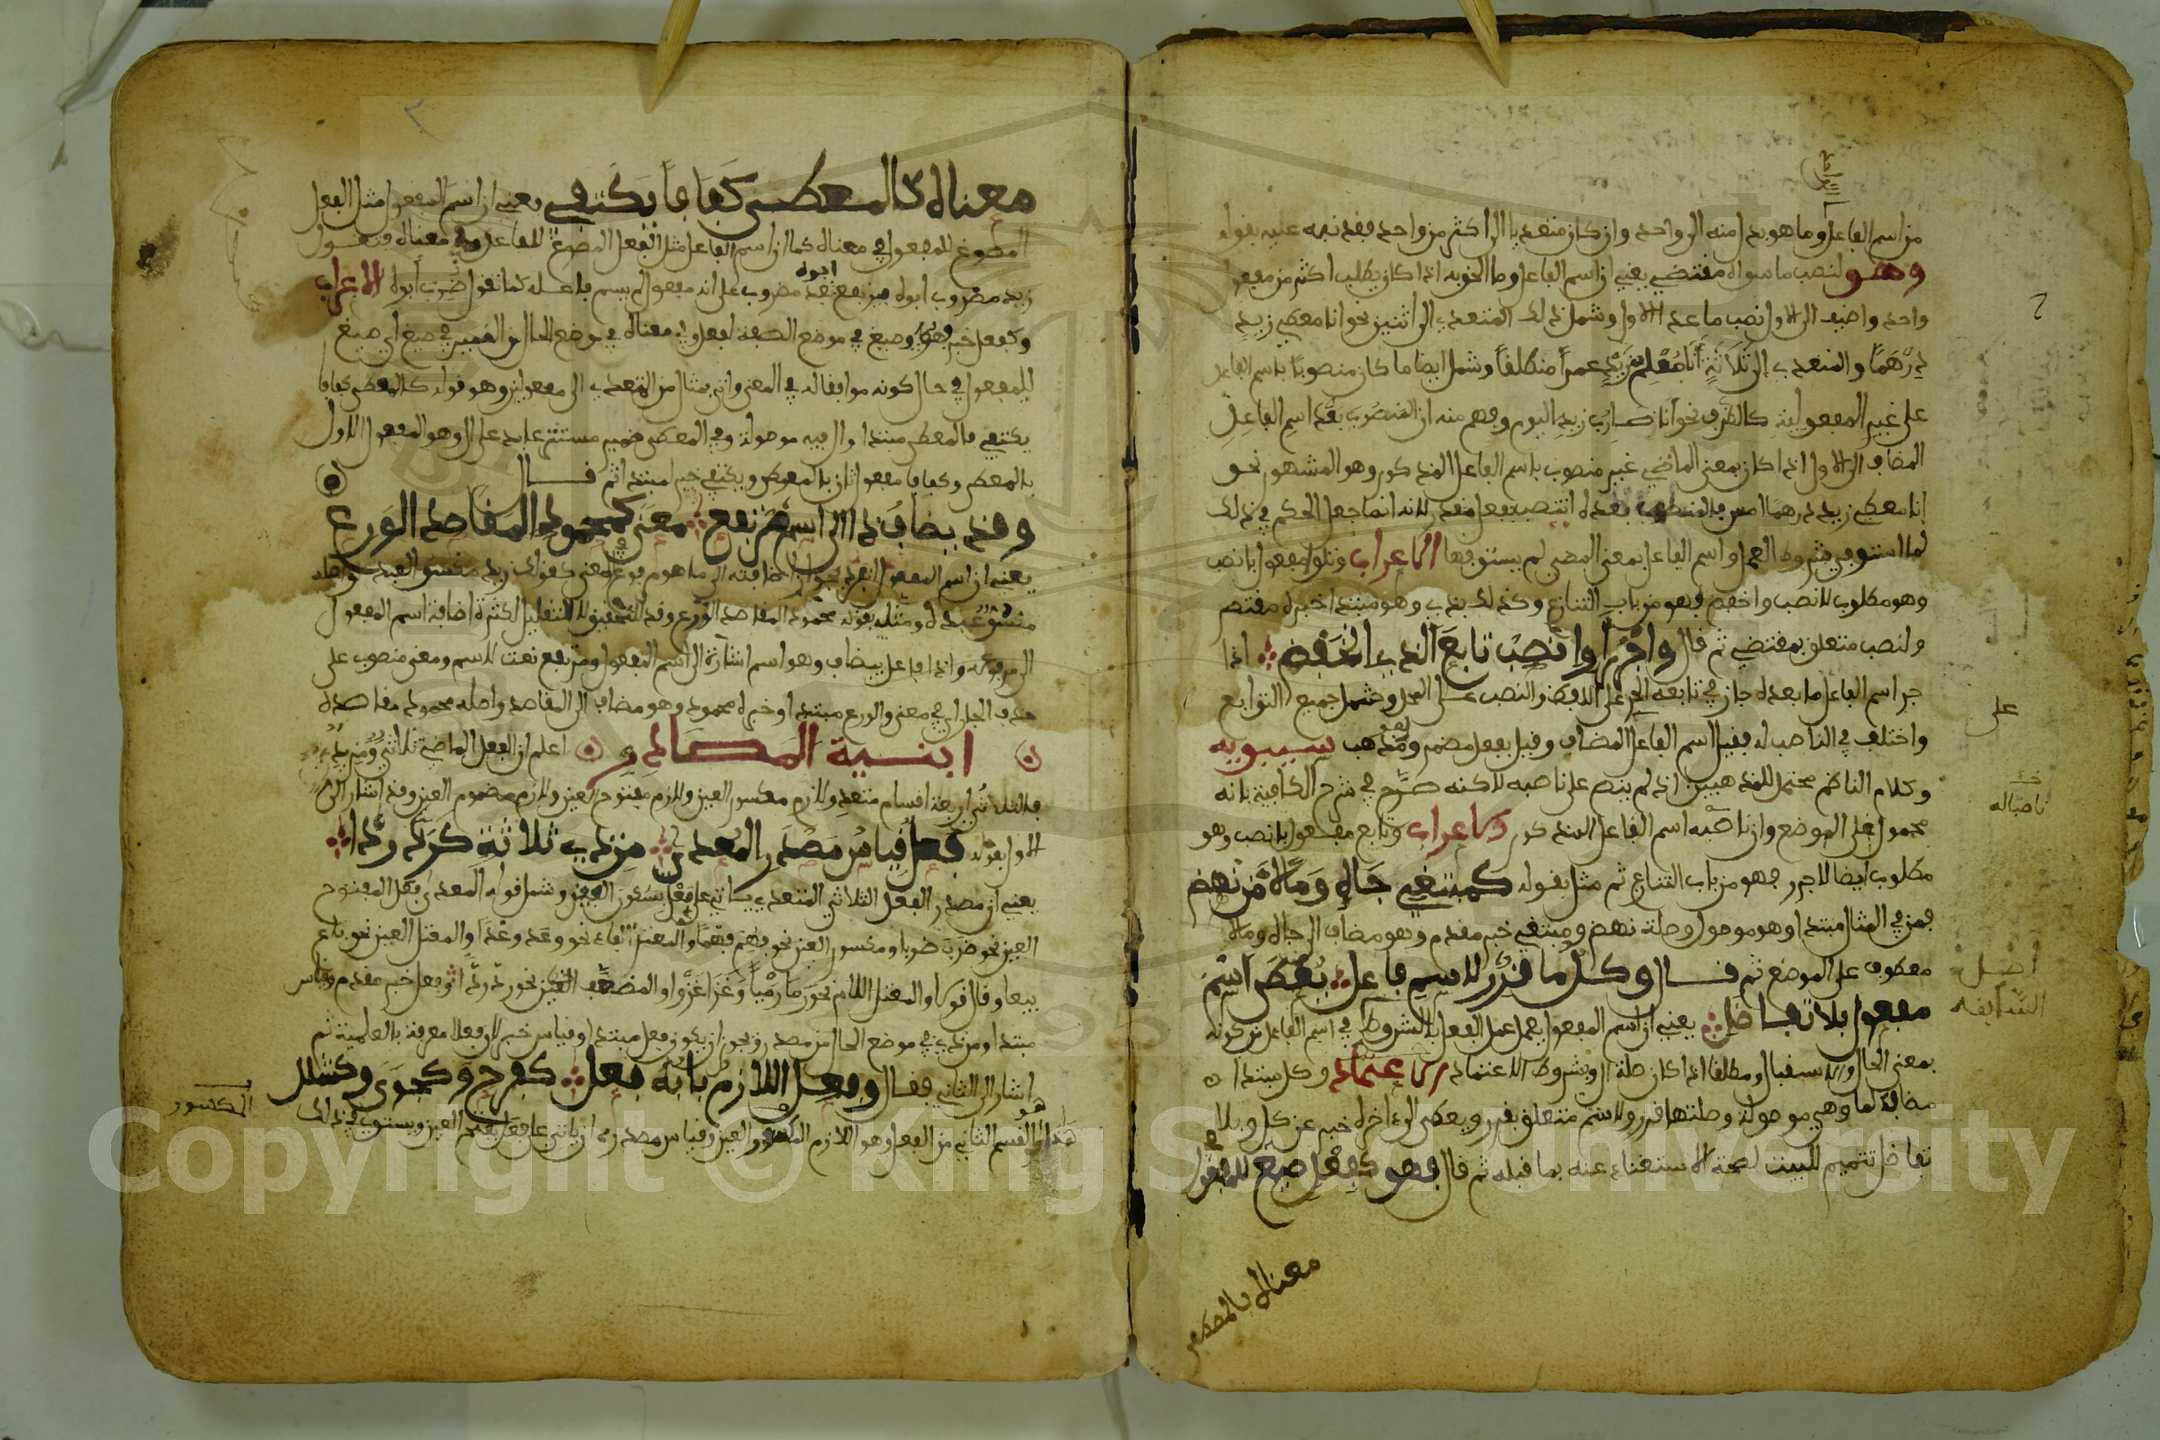 من اسم الفاعل وما هو بدا منه الى واحد وان كان متعديا الى اكثر من واحد فقد نبه عليه بقوله
وهو لنصب ما سواه مقتضي يعني ان اسم الفاعل وما الحق به اذا كان يطلب اكثر من مفعول
واحد واضيف الى الاول نصب ما عدا الاول وشمل ذلك المتعدي الى اثنين نحو انا معطي زيد
درهما والمتعدي الى ثلاثة انا معلم زيد عمرا منطلقا وشمل ايضا ما كان منصوبا باسم الفاعل
على غير المفعولية كالظرف نحو انا ضارب زيد اليوم وفهم منه ان المنصوب بعد اسم الفاعل
المضاف الى الاول اذا كان بمعنى الماضي غير منصوب باسم الفاعل المذكور وهو المشهور نحو
انا معطي زيد درهما امس فالمنصوب بعده انتصب بفعل مقدر لانه انما جعل الحكم في ذلك
لما استوفى شروط العمل واسم الفاعل بمعنى المضي لم يستوفها الاعراب وتلو مفعول بانصب
وهو مطلوب لانصب واخفض فهو من باب التنازع وكذلك بذي وهو مبتدا خبره مقتضي
ولنصب متعلق بمقتضي ثم قال واجرر او انصب تابع الذي انخفض اذا
جر اسم الفاعل ما بعده جاز في تابعه الجر على اللفظ والنصب على المحل وشمل جميع التوابع
واختلف في الناصب له فقيل اسم الفاعل المضاف وقيل بفعل مضمر وهو مذهب سيبويه
وكلام الناظم محتمل للمذهبين اذ لم ينص على ناصبه لاكنه صرح في شرح الكافية بانه
محمول على الموضع وان ناصبه اسم الفاعل المذكور الاعراب وتابع مفعول بانصب وهو
مطلوب ايضا لاجرر فهو من باب التنازع ثم مثل بقوله كمبتغي جاه ومالا من نهض
فمن في المثال مبتدا وهو موصول وصلته نهض ومبتغي خبر مقدم وهو مضاف الى جاه ومالا
معطوف على الموضع ثم قال وكل ما قرر لاسم فاعل يعطى اسم
مفعول بلا تفاضل يعني ان اسم المفعول يعمل عمل الفعل بالشروط في اسم الفاعل من كونه
بمعنى الحال والاستقبال ومطلقا اذا كان صلة ال وبشروط الاعتماد الاعتماد وكل مبتدا
مضاف لما وهي موصولة وصلتها قرر ولاسم متعلق بقرر ويعطى الى اخره خبر عن كل وبلا
تفاضل تتميم للبيت لصحة الاستغناء عنه بما قبله ثم قال فهو كفعل صيغ للمفعول في
معناه كالمعطى
على
ناصباله
معناه كالمعطى كفافا يكتفي يعني ان اسم المفعول مثل الفعل
المصوغ للمفعول في معناه كما ان اسم الفاعل مثل الفعل المصوغ للفاعل في معناه فتقول
زيد مضروب ابوه فيرتفع بعد مضروب على انه مفعول لم يسم فاعله كما تقول ضرب ابوه الاعراب
وكفعل خبر فهو وصيغ في موضع الصفة لفعل وفي معناه في موضع الحال من الضمير في صيغ اي صيغ
للمفعول في حال كونه موافقا له في المعنى واتى بمثال من المتعدي الى مفعولين وهو قوله كالمعطى كفافا
يكتفي فالمعطى مبتدا وال فيه موصولة وفي المعطى ضمير مستتر عايد على ال وهو المفعول الاول
بالمعطى وكفافا مفعول ثان بالمعطى ويكتفي خبر المبتدا ثم قال
وقد يضاف ذا الى اسم مرتفع معنى كمحمود المقاصد الورع
يعني ان اسم المفعول انفرد بجواز اضافته الى ما هو مرفوع في المعنى كقولك زيد مكسو العبد واصله
مكسو عبده ومثله بقوله محمود المقاصد الورع وقد للتحقيق لا للتقليل لكثرة اضافة اسم المفعول
الى مرفوعه وذا فاعل بيضاف وهو اسم اشارة الى اسم المفعول ومرتفع نعت للاسم ومعنى منصوب على
حذف الجار اي في معنى والورع مبتدا وخبره محمود وهو مضاف الى المقاصد واصله محمود مقاصده
ابنية المصادر اعلم ان الفعل الماضي ثلاثي ومزيد
فالثلاثي اربعة اقسام متعد ولازم مكسور العين ولازم مفتوح العين ولازم مضموم العين وقد اشار الى
الاول بقوله فعل قياس مصدر المعدى من ذي ثلاثة كرد ردا
يعني ان مصدر الفعل الثلاثي المتعدي ياتي على فعل بسكون العين وشمل قوله المعدى فعل المفتوح
العين نحو ضرب ضربا ومكسور العين نحو فهم فهما والمعتل الفاء نحو وعد وعدا والمعتل العين نحو باع
بيعا وقال قولا والمعتل اللام نحو رما رميا وغزا غزوا والمضعف العين نحو رد ردا وفعل خبر مقدم وقياس
مبتدا ومن ذي في موضع الحال من مصدر ويجوز ان يكون فعل مبتدا وقياس خبر لان فعلا معرفة بالعلمية ثم
اشار الى الثاني فقال وفعل اللازم بابه فعل كفرح وكجوى وكشلل
هذا هو القسم الثاني من الفعل وهو اللازم المكسور العين وقياس مصدره ان ياتي على فعل بفتح العين ويستوي في ذلك
المكسور